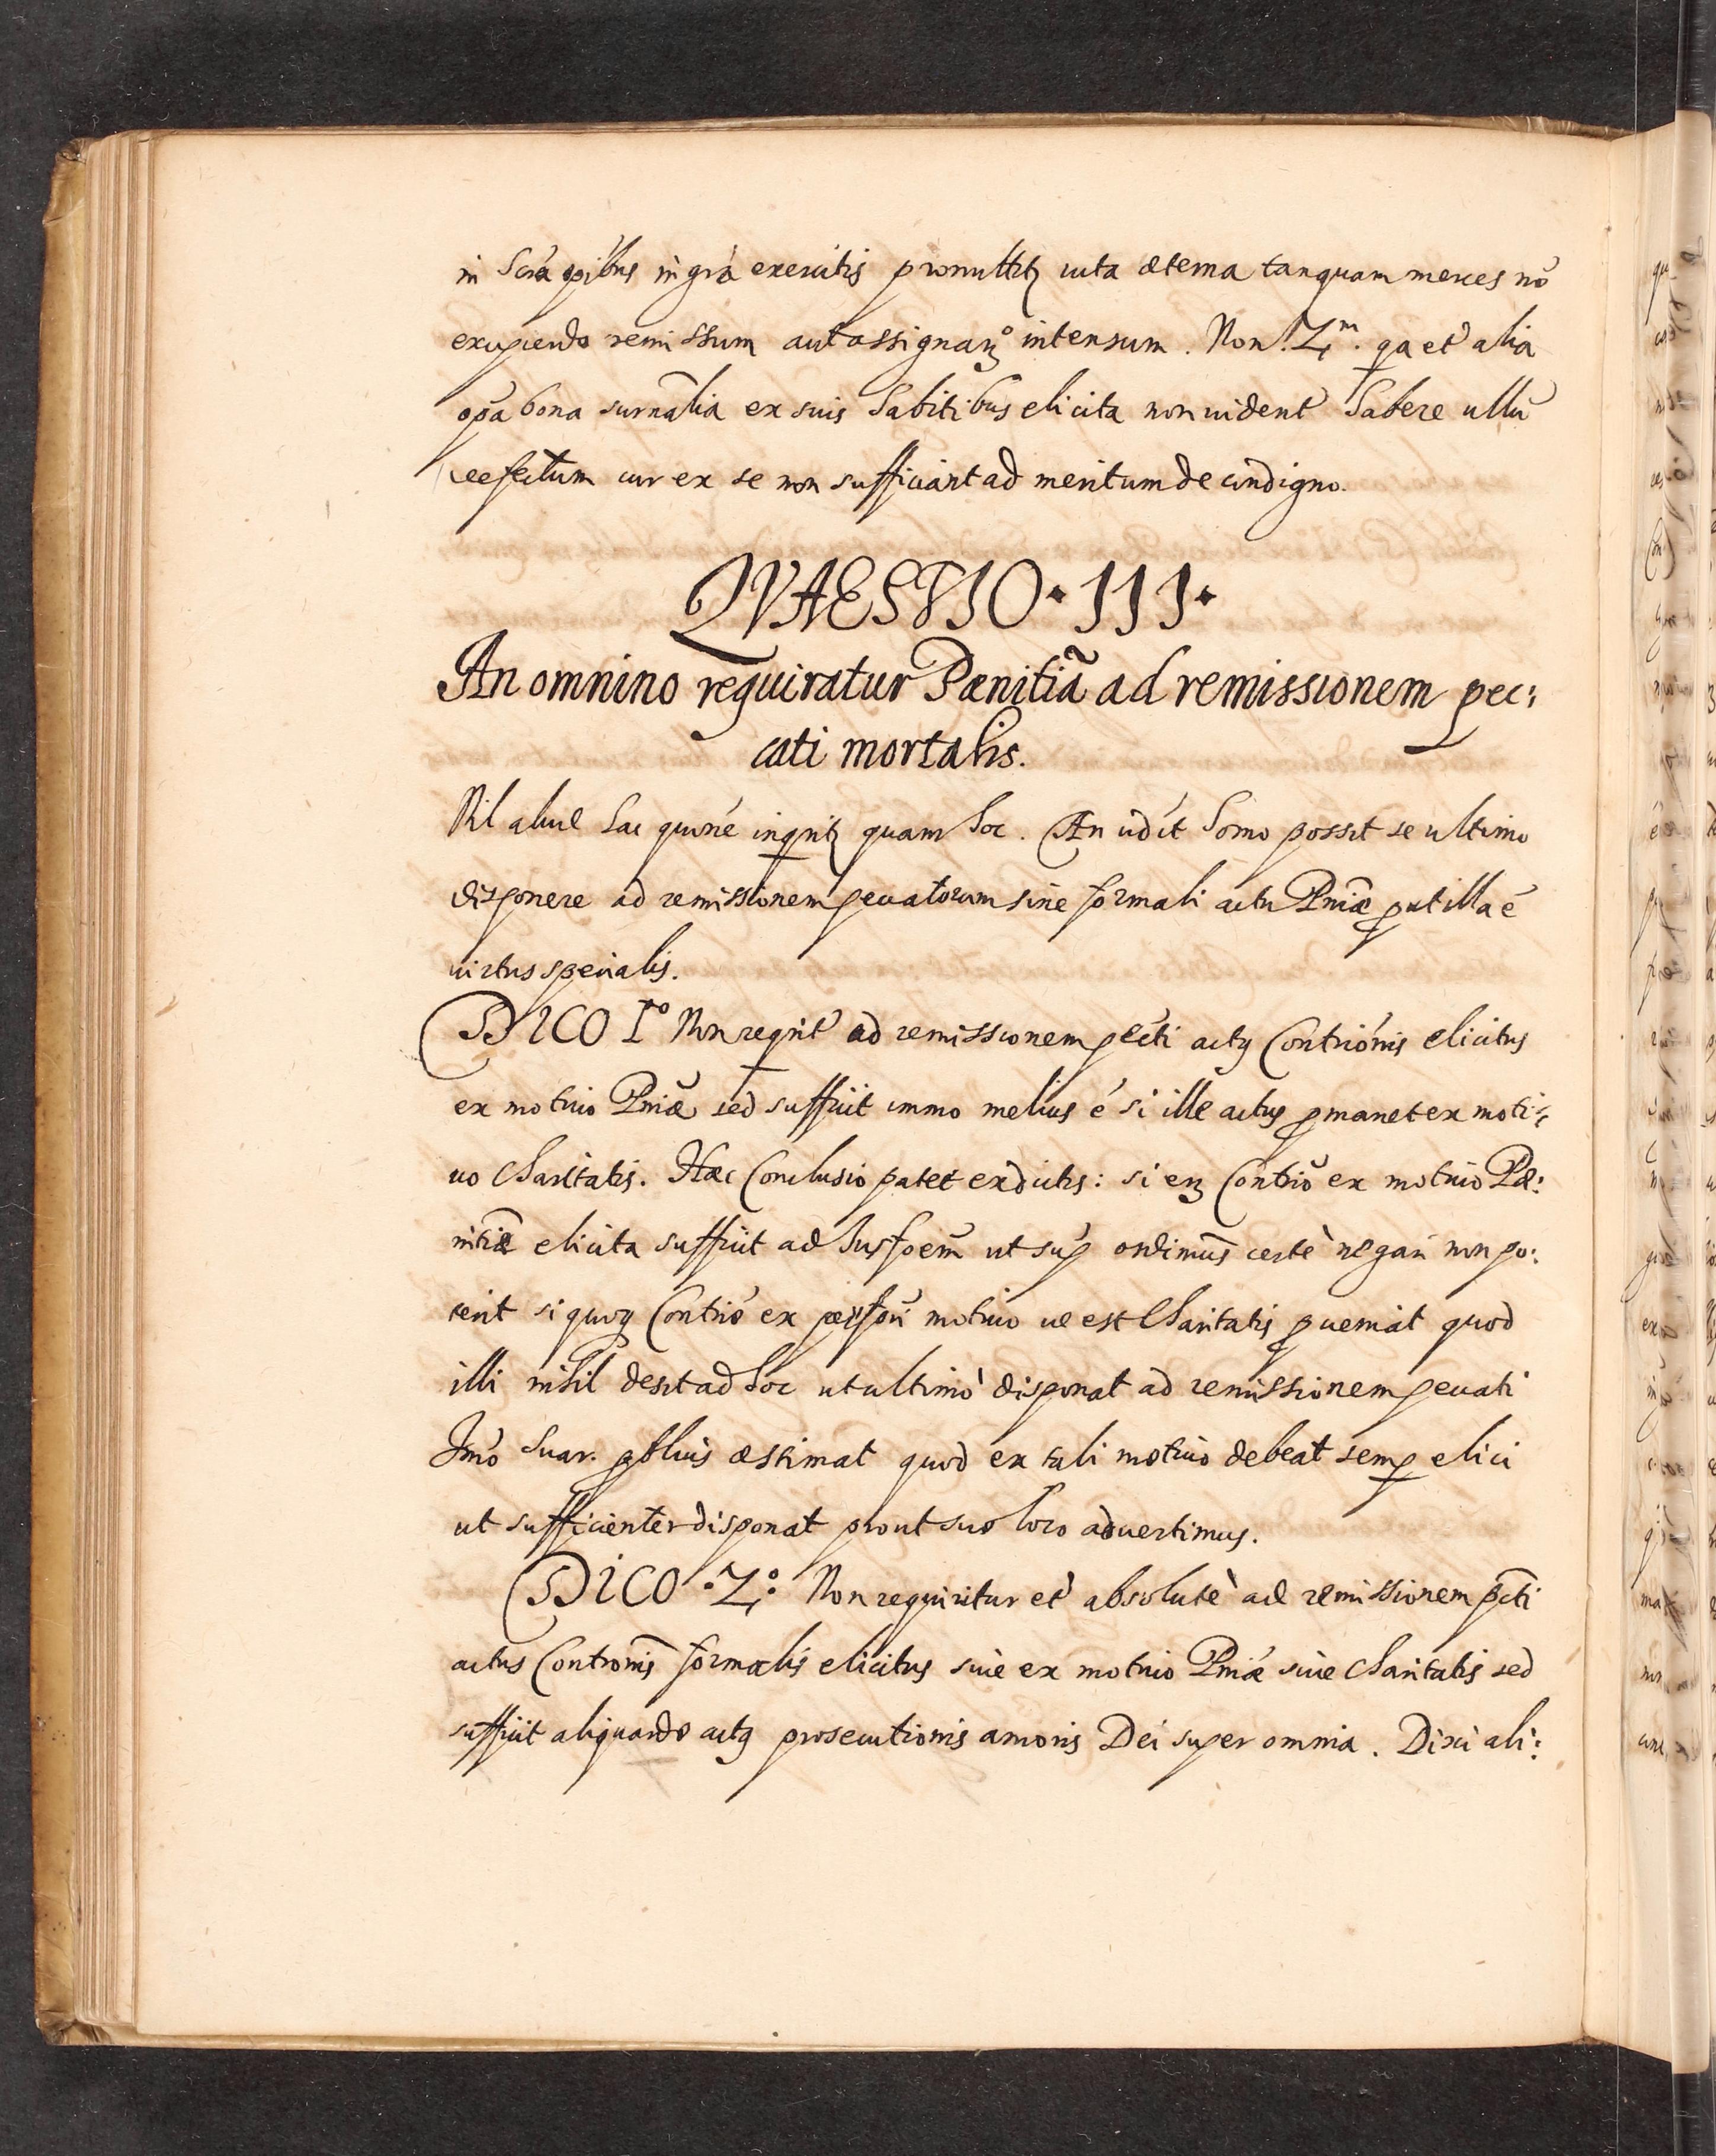 in Scrã opibus in grã exercitis promittitʒ uita æterna tanquam merces nõ
excipiendo remissum aut assignanʒº intensum. Non. 2ᵐ. qa et alia
opa bona surnãlia ex suis habitibus elicita non uident habere ullũ
defectum cur ex se non sufficiant ad meritum de condigno.
QVAESTIO · III ·
An omnino requiratur Pænitiã ad remissionem pec:
cati mortalis.
Nil aliud hac quõne inqritʒ quam hoc. An uidct homo possit se ultimo
disponere ad remissionem peccatorum sine formali actu Pniæ put illa ẽ
uirtus specialis.
DICO Iº Non reqrit ad remissionem pccti actꝯ Contriõnis elicitus
ex motiuo Pniæ sed sufficit immo melius ẽ si ille actus pmanet ex moti:
uo Charitatis. Hæc Conclusio patet ex dictis: si enʒ Contriõ ex motiuo Pæ:
nitiæ elicita sufficit ad Iusfoẽm ut sup ondimus certè negari non po:
terit si quoqꝫ Contriõ ex motiuo ue est Charitatis pueniat quod
illi nihil desit ad hoc ut ultimò disponat ad remissionem peccati
Imõ Suar. pbliùs æstimat quod ex tali motiuo debeat semp elici
ut sufficienter disponat prout suo loco aduertimus.
DICO · 2º: Non requiritur et absolutè ad remissionem pcti
actus Contrõnis formalis elicitus siue ex motiuo Pniæ siue Charitatis sed
sufficit aliquando actꝯ prosecutionis amoris Dei super omnia. Dixi ali: